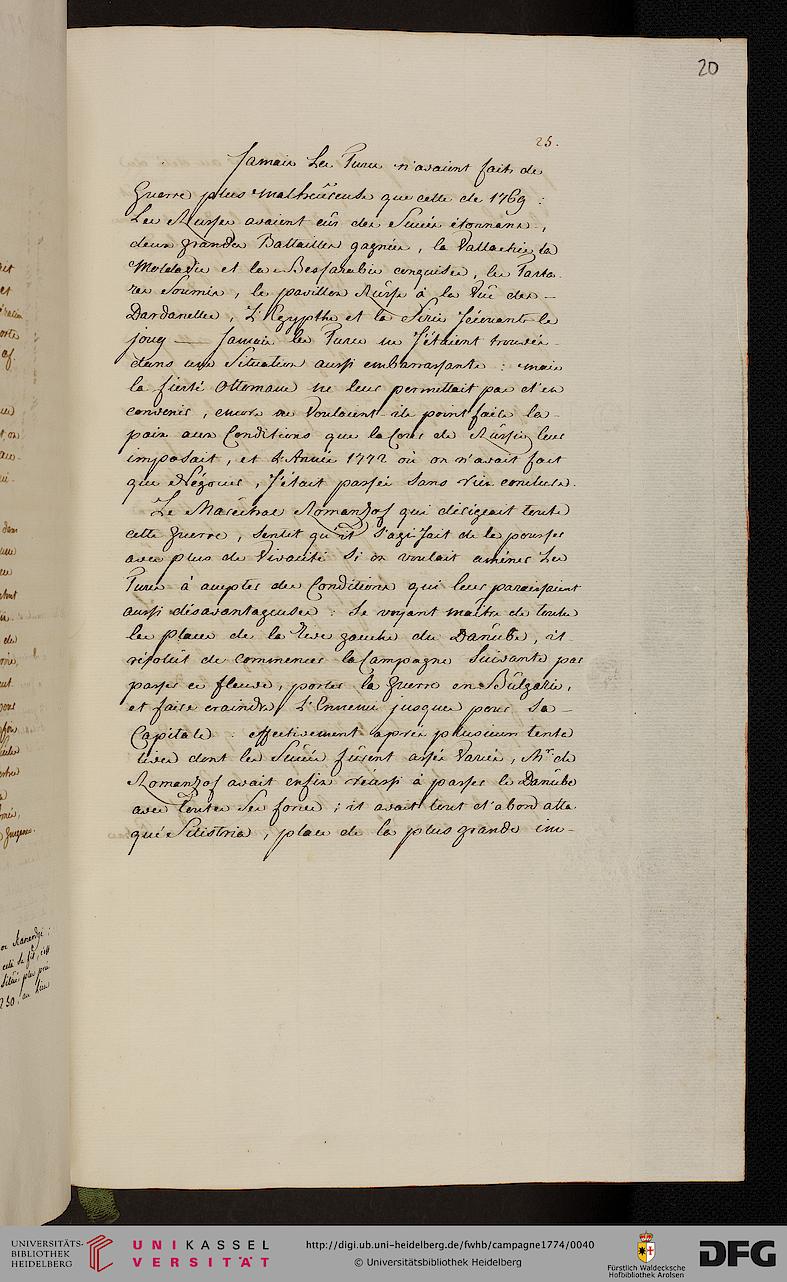 20
25.
Jamais Les Turcs n'avaient faits de
Guerre plus malheureuse que celle de 1769 :
Les Russes avaient eûs des Succés étonnans,
deux grandes Battailles gagnées, la Vallachie, la
Moldavie et la Bessarabie conquises, les Tarta-
res Soumis, le pavillon Russe à la Vuë des
Dardanelles, L'Egypthe et la Sirie Sécouants le
joug — Jamais les Turcs ne S'étaient trouvés
dans une Situation aussi embarrassante : mais
la fierté Ottomane ne leur permettait pas d'en
convenir, encore ne Voulaient-ils point faire la
paix aux Conditions que la Cour de Russie leur
imposait, et L'Année 1772 où on n'avait fait
que Négocier, S'était passée Sans rien conclure.
Le Maréchal Romanzof qui dirigeait toute
cette guerre, Sentit qu'il S'agissait de la pousser
avec plus de Vivacité Si on voulait amener Les
Turcs à accepter des Conditions qui leur paraissaient
aussi désavantageuses : Se voyant maitre de toutes
les places de la Rive gauche du Danube, il
résolut de commencer la Campagne Suivante par
passer ce fleuve, porter la guerre en Bulgarie,
et faire craindre L'Ennemi jusques pour Sa
Capitale : effectivement aprés plusieurs tenta
tives dont les Succés fûrent assés Variés, Mr. de
Romanzof avait enfin réussi à passer le Danube
avec toutes Ses forces ; il avait tout d'abord atta
qué Silistria, place de la plus grande im-
UNIVERSITÄTS-
BIBLIOTHEK
HEIDELBERG
UNIKASSEL
VERSITÄT
http://digi.ub.uni-heidelberg.de/fwhb/campagne1774/0040
© Universitätsbibliothek Heidelberg
Fürstlich Waldecksche
Hofbibliothek Arolsen
DFG